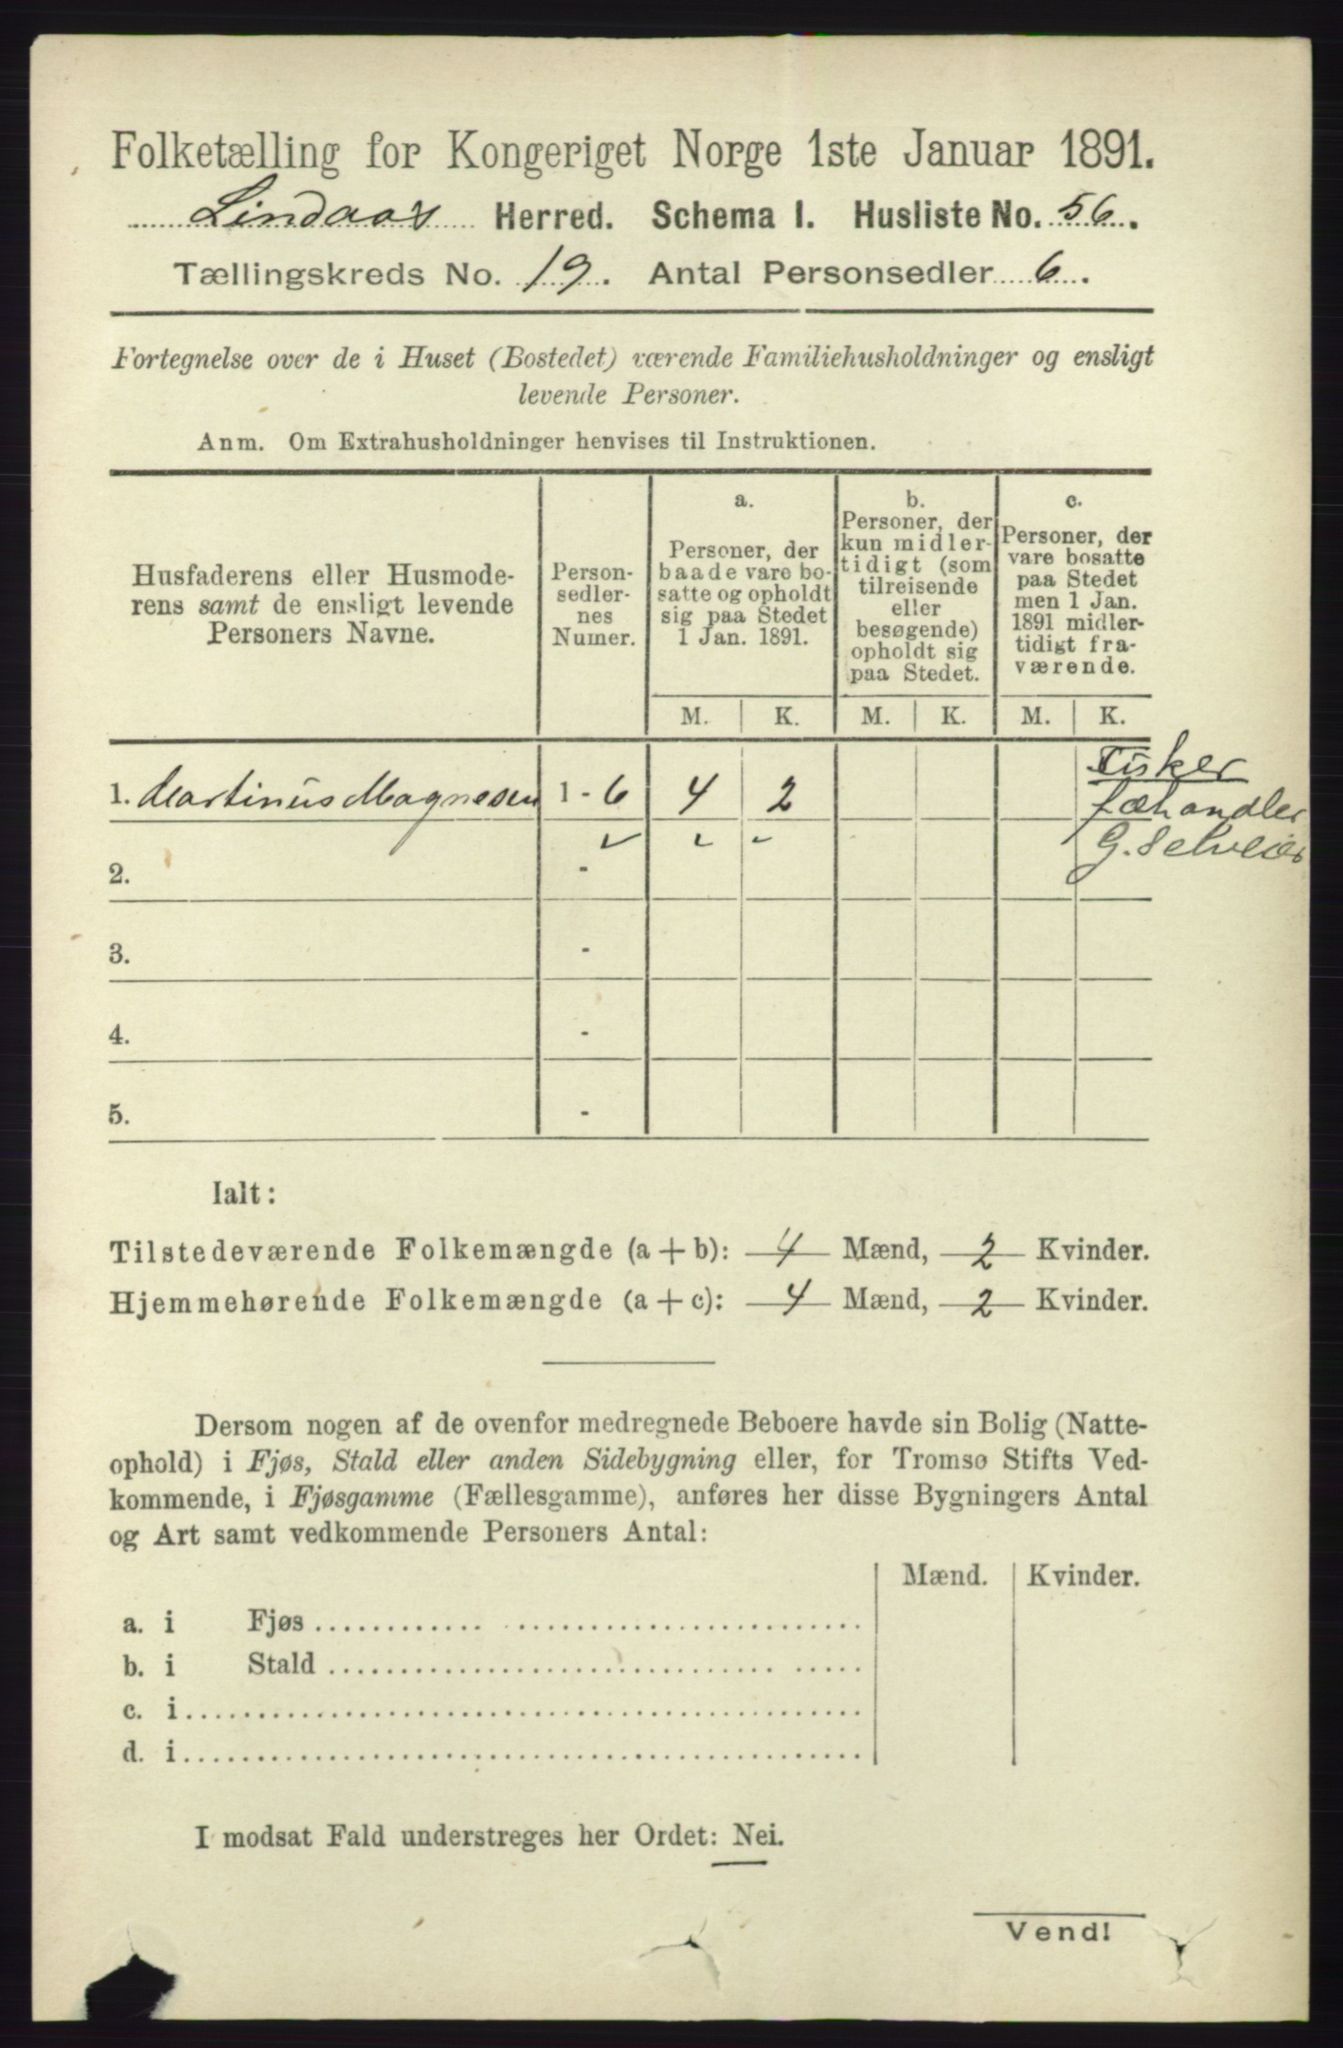 Folketælling for Kongeriget Norge 1ste Januar 1891.
Lindaas Herred. Schema I. Husliste No. 56.
Tællingskreds No. 19. Antal Personsedler 6.
Fortegnelse over de i Huset (Bostedet) værende Familiehusholdninger og ensligt
levende Personer.
Anm. Om Extrahusholdninger henvises til Instruktionen.
Husfaderens eller Husmode-
rens samt de ensligt levende
Personers Navne.
Person-
sedler-
nes
Numer.
a.
Personer, der
baade vare bo-
satte og opholdt
sig paa Stedet
1 Jan. 1891.
b.
Personer, der
kun midler-
tidigt (som
tilreisende
eller
besøgende)
opholdt sig
paa Stedet.
c.
Personer, der
vare bosatte
paa Stedet
men 1 Jan.
1891 midler-
tidigt fra-
værende.
M. K. M. K. M. K.
1. Martinus Magnesen 1 - 6 4 2
Fisker
fæhandler
G. Selveier
2. -
3. -
4. -
5. -
Ialt:
Tilstedeværende Folkemængde (a + b): 4 Mænd, 2 Kvinder.
Hjemmehørende Folkemængde (a + c): 4 Mænd, 2 Kvinder.
Dersom nogen af de ovenfor medregnede Beboere havde sin Bolig (Natte-
ophold) i Fjøs, Stald eller anden Sidebygning eller, for Tromsø Stifts Ved-
kommende, i Fjøsgamme (Fællesgamme), anføres her disse Bygningers Antal
og Art samt vedkommende Personers Antal:
Mænd. Kvinder.
a. i Fjøs
b. i Stald
c. i
d. i
I modsat Fald understreges her Ordet: Nei.
Vend!